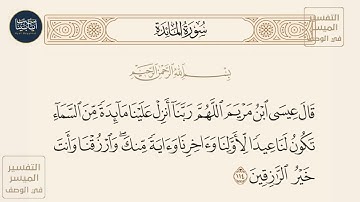 سُورَةُ المَائِدَةِ
التفسير
الميسر
في الوصف
بِسْمِ اللَّهِ الرَّحْمَٰنِ الرَّحِيمِ
قَالَ عِيسَى ابْنُ مَرْيَمَ اللَّهُمَّ رَبَّنَا أَنزِلْ عَلَيْنَا مَائِدَةً مِّنَ السَّمَاءِ
تَكُونُ لَنَا عِيدًا لِّأَوَّلِنَا وَءَاخِرِنَا وَءَايَةً مِّنكَ وَارْزُقْنَا وَأَنتَ
خَيْرُ الرَّازِقِينَ ١١٤
التفسير
الميسر
في الوصف